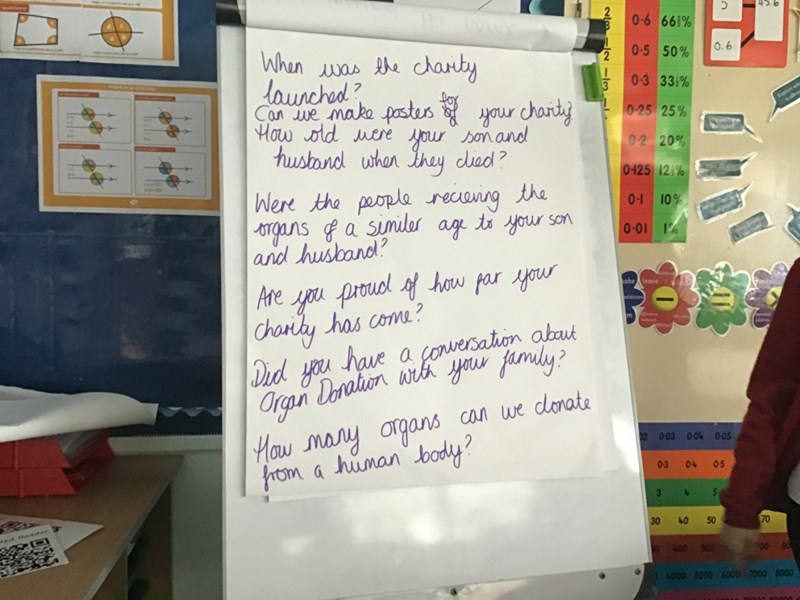 When was the charity
launched?
Can we make posters for your charity?
How old were your son and
husband when they died?
Were the people recieving the
organs of a similer age to your son
and husband?
Are you proud of how far your
charity has come?
Did you have a conversation about
Organ Donation with your family?
How many organs can we donate
from a human body?
2/3 0.6 66⅔%
1/2 0.5 50%
1/3 0.3 33⅓%
0.25 25%
0.2 20%
0.125 12½%
0.1 10%
0.01 1%
0.6
0.03 0.04 0.05
0.3 0.4 0.5
3 4 5
30 40 50 70
4000 5000 6000 7000 8000